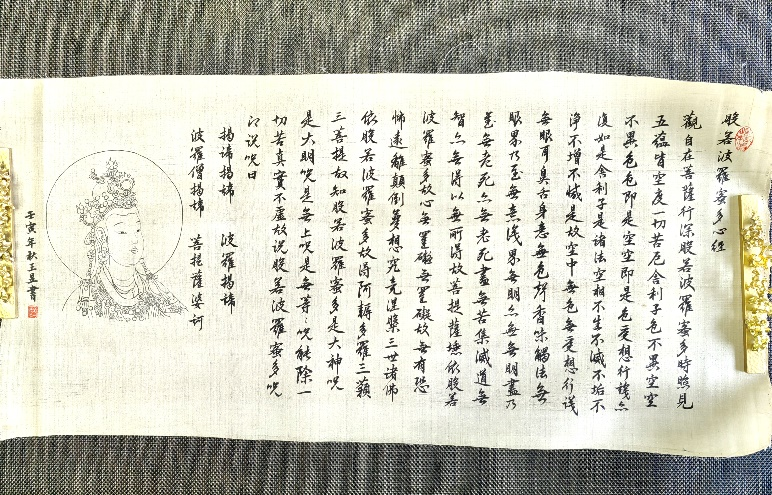 般若波羅蜜多心經
觀自在菩薩行深般若波羅蜜多時照見
五蘊皆空度一切苦厄舍利子色不異空空
不異色色即是空空即是色受想行識亦
復如是舍利子是諸法空相不生不滅不垢不
淨不增不減是故空中無色無受想行識
無眼耳鼻舌身意無色聲香味觸法無
眼界乃至無意識界無無明亦無無明盡乃
至無老死亦無老死盡無苦集滅道無
智亦無得以無所得故菩提薩埵依般若
波羅蜜多故心無罣礙無罣礙故無有恐
怖遠離顛倒夢想究竟涅槃三世諸佛
依般若波羅蜜多故得阿耨多羅三藐
三菩提故知般若波羅蜜多是大神咒
是大明咒是無上咒是無等咒能除一
切苦真實不虛故說般若波羅蜜多咒
即說咒曰
揭諦揭諦 波羅揭諦
波羅僧揭諦 菩提薩婆訶
壬寅年秋王昱書